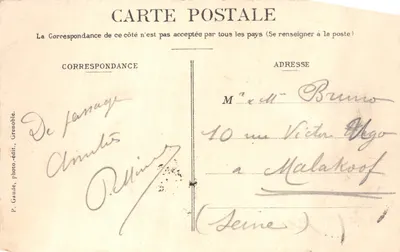 CARTE POSTALE
La Correspondance de ce côté n'est pas acceptée par tous les pays (Se renseigner à la poste)
CORRESPONDANCE
ADRESSE
P. Gaude, photo-édit., Grenoble.
De passage
Amitiés
Mr & Me Bruno
10 rue Victor Hugo
a Malakoof
(Seine)